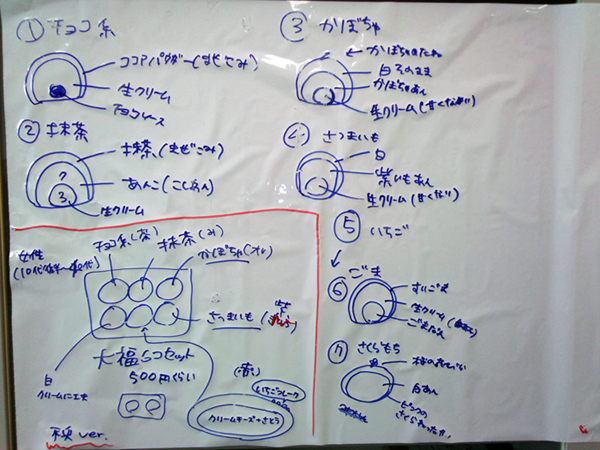 ① チョコ系
ココアパウダー(まぜこみ)
生クリーム
チョコソース
② 抹茶
抹茶(まぜこみ)
あんこ(こしあん)
生クリーム
③ かぼちゃ
かぼちゃのたね
白そのまま
かぼちゃあん
生クリーム(甘くない)
④ さつまいも
白
紫いもあん
生クリーム(甘くない)
⑤ いちご
⑥ ごま
すりごま
生クリーム
ごまあん
⑦ さくらもち
白あん
ピンクの
女性
チョコ系(茶)
抹茶(み)
かぼちゃ(オレ)
さつまいも
大福6コセット
500円くらい
白
クリームに工夫
いちごフレーク
クリームチーズ+さとう
ver.